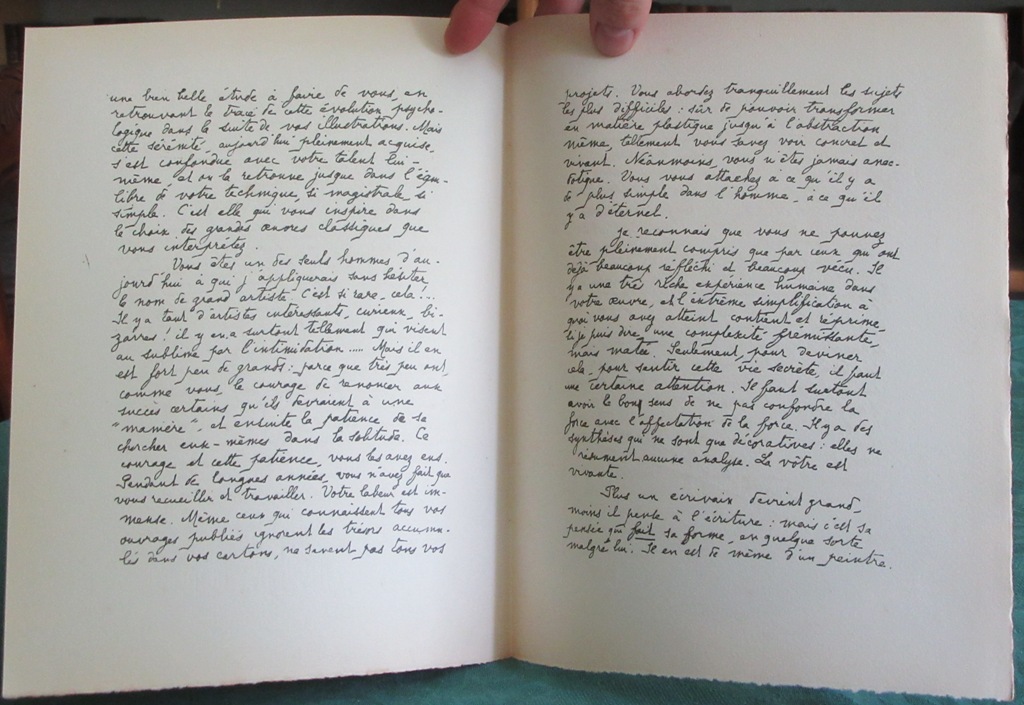 une bien belle étude à faire de vous, en
retrouvant le tracé de cette évolution psycho-
logique dans la suite de vos illustrations. Mais
cette sérénité, aujourd'hui pleinement acquise,
s'est confondue avec votre talent lui-
même et on le retrouve jusque dans l'équi-
libre de votre technique, si magistrale, si
simple. C'est elle qui vous inspire dans
le choix des grandes œuvres classiques que
vous interprétez.
Vous êtes un des seuls hommes d'au-
jourd'hui à qui j'appliquerais sans hésiter
le nom de grand artiste. C'est si rare, cela...
Il y a tant d'artistes intéressants, curieux, bi-
zarres! il y en a surtout tellement qui visent
au sublime par l'intimidation..... Mais il en
est fort peu de grands: parce que très peu ont,
comme vous, le courage de renoncer aux
succès certains qu'ils devraient à une
"manière", et ensuite la patience de se
chercher eux-mêmes dans la solitude. Ce
courage et cette patience, vous les avez eus.
Pendant de longues années, vous n'avez fait que
vous recueillir et travailler. Votre labeur est im-
mense. Même ceux qui connaissent tous vos
ouvrages publiés ignorent les trésors accumu-
lés dans vos cartons, ne savent pas tous vos
projets. Vous abordez tranquillement les sujets
les plus difficiles: sûr de pouvoir transformer
en matière plastique jusqu'à l'abstraction
même, tellement vous savez voir concret et
vivant. Néanmoins, vous n'êtes jamais anec-
dotique. Vous vous attachez à ce qu'il y a
de plus simple dans l'homme, à ce qu'il
y a d'éternel.
Je reconnais que vous ne pouvez
être pleinement compris que par ceux qui ont
déjà beaucoup réfléchi et beaucoup vécu. Il
y a une très riche expérience humaine dans
votre œuvre, et l'extrême simplification à
quoi vous avez atteint contient et réprime,
si je puis dire, une complexité frémissante,
mais matée. Seulement, pour deviner
cela, pour sentir cette vie secrète, il faut
une certaine attention. Il faut surtout
avoir le bon sens de ne pas confondre la
force avec l'affectation de la force. Il y a des
synthèses qui ne sont que décoratives: elles ne
résument aucune analyse. La vôtre est
vivante.
Plus un écrivain devient grand,
moins il pense à l'écriture: mais c'est sa
pensée qui fait sa forme, en quelque sorte
malgré lui. Il en est de même d'un peintre.